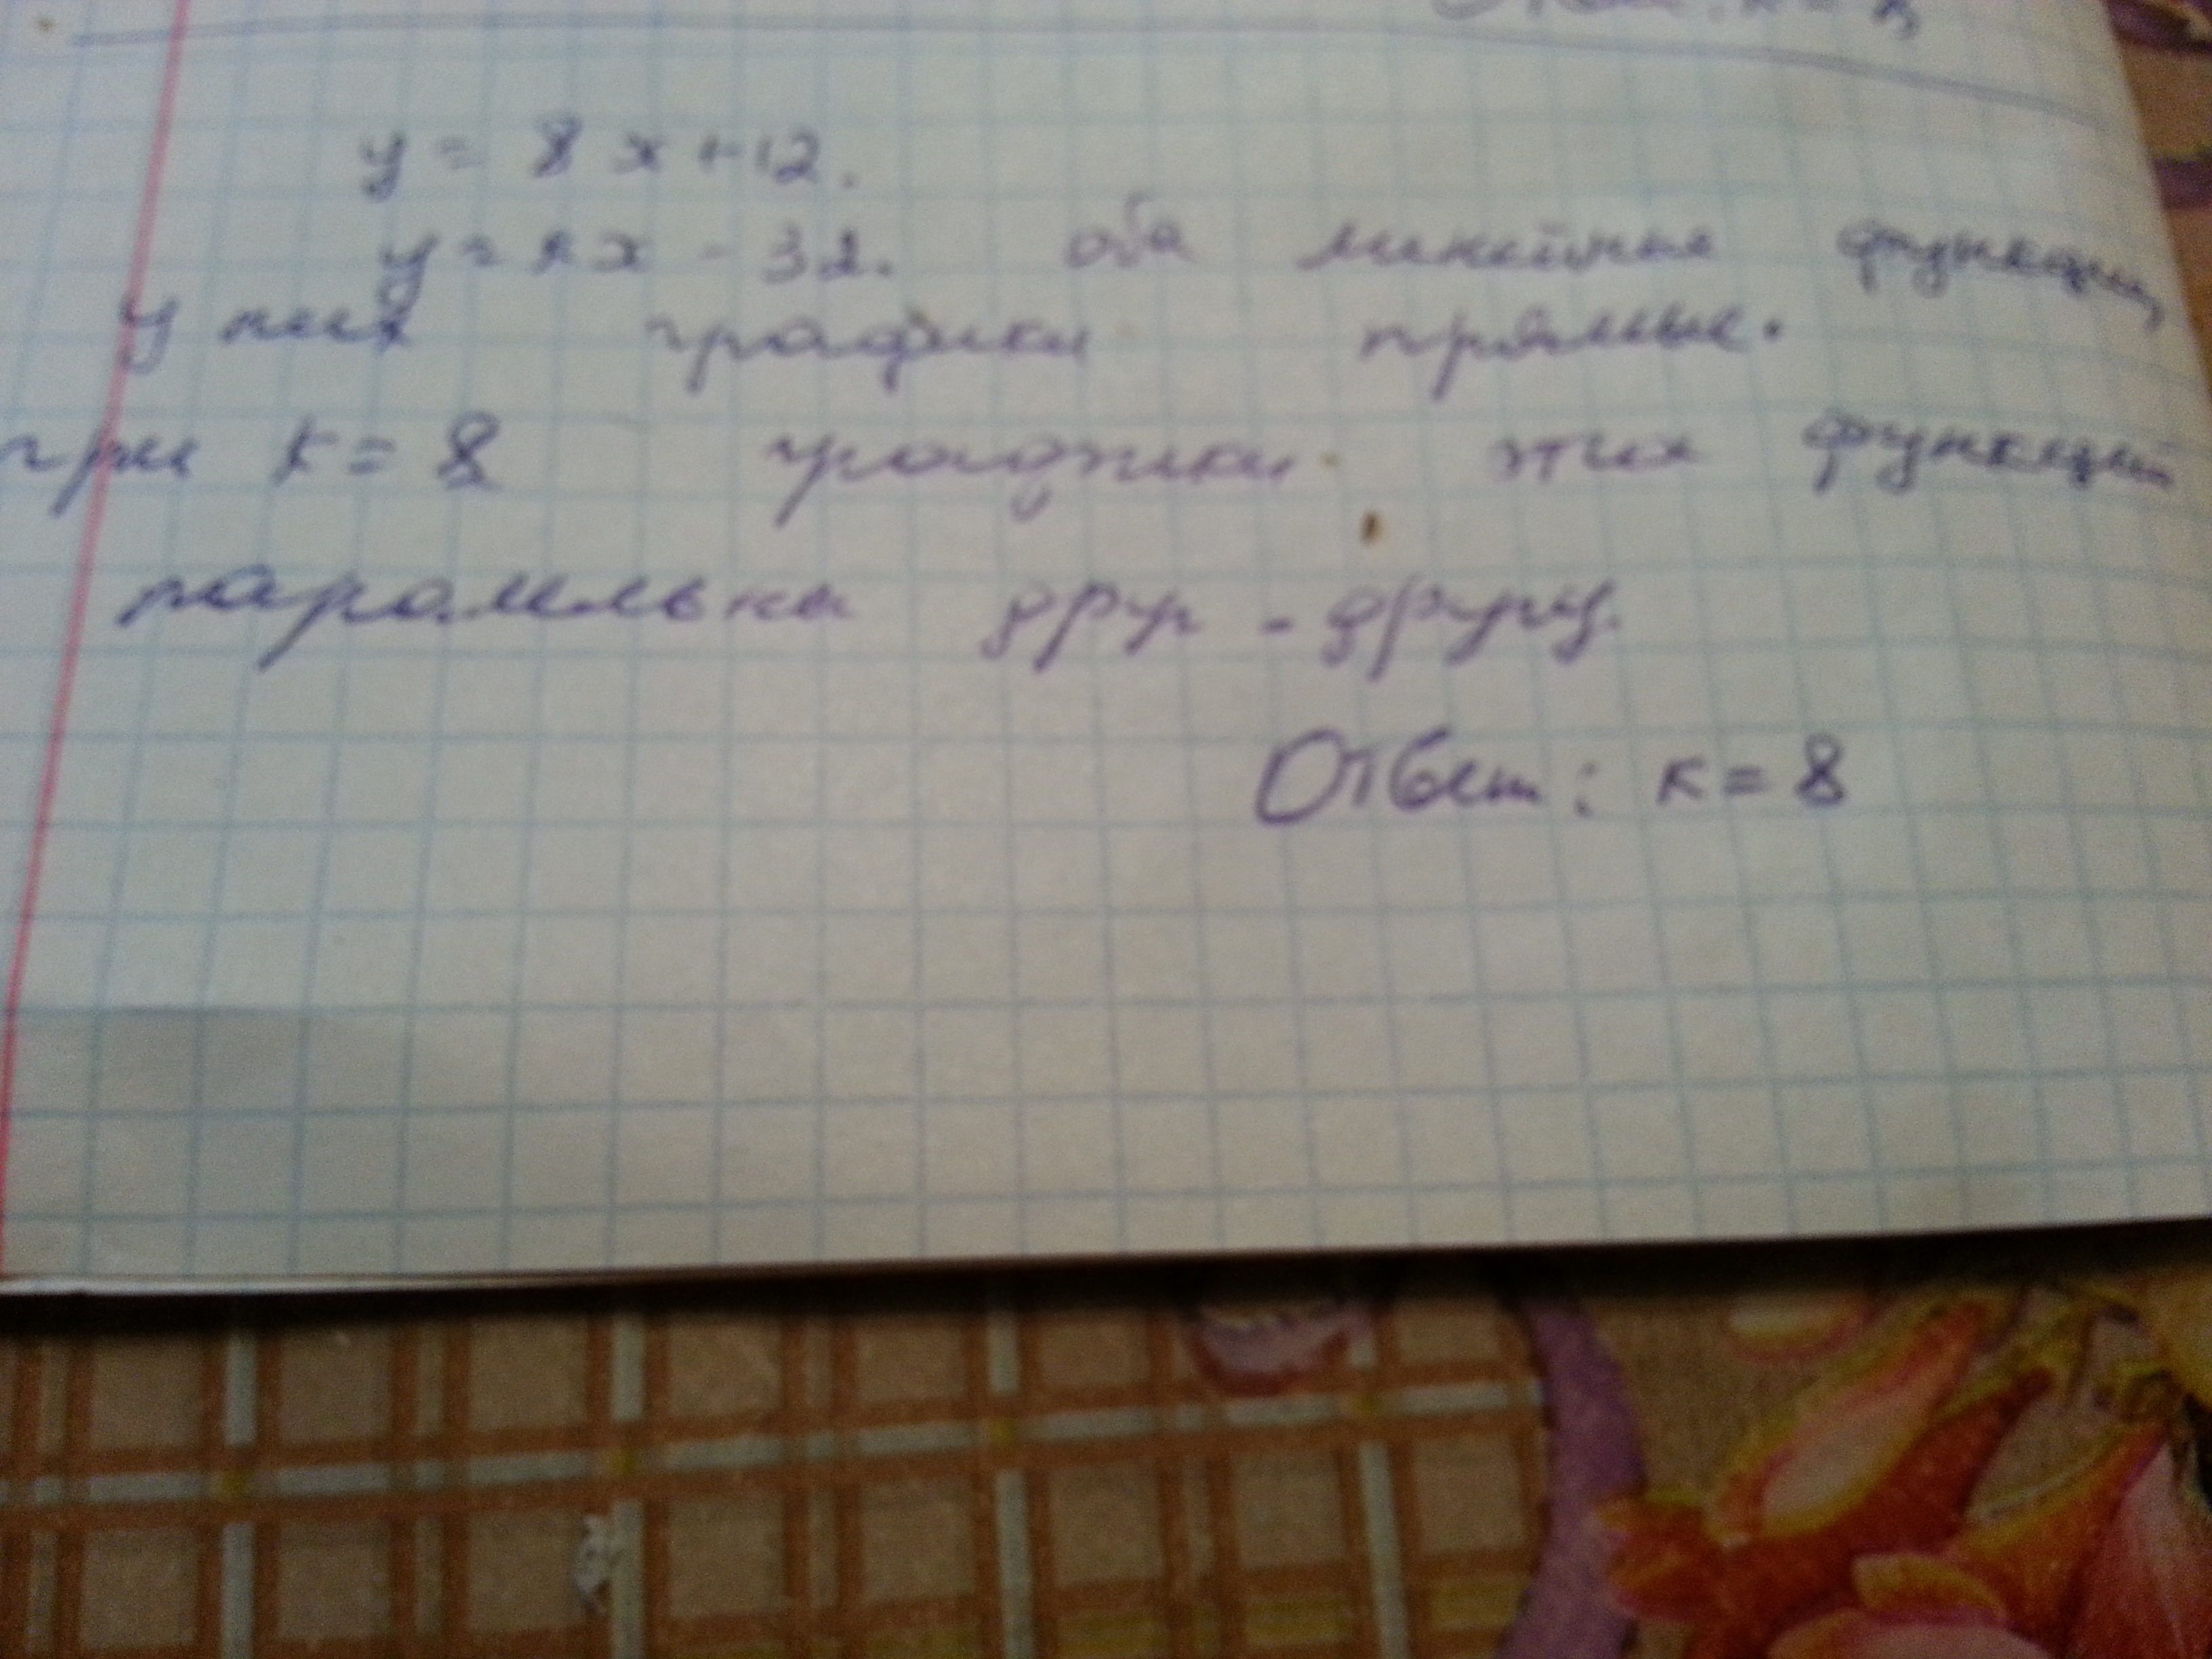 y = 8x+12.
y = кx - 32. оба линейные функции,
у них графики прямые.
при к = 8 графики этих функций
паралельны друг - другу.
Ответ: к = 8